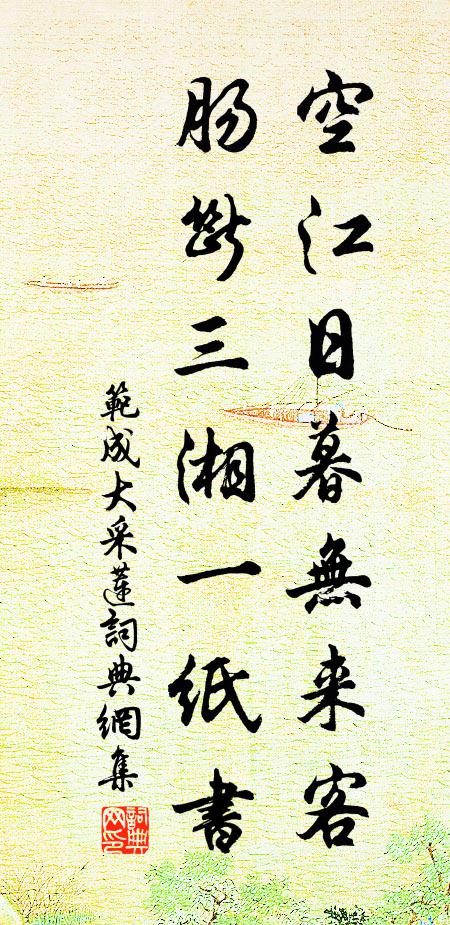 空江日暮無来客
肠斷三湘一紙書
範成大采蓮詞典網集
詞典网印